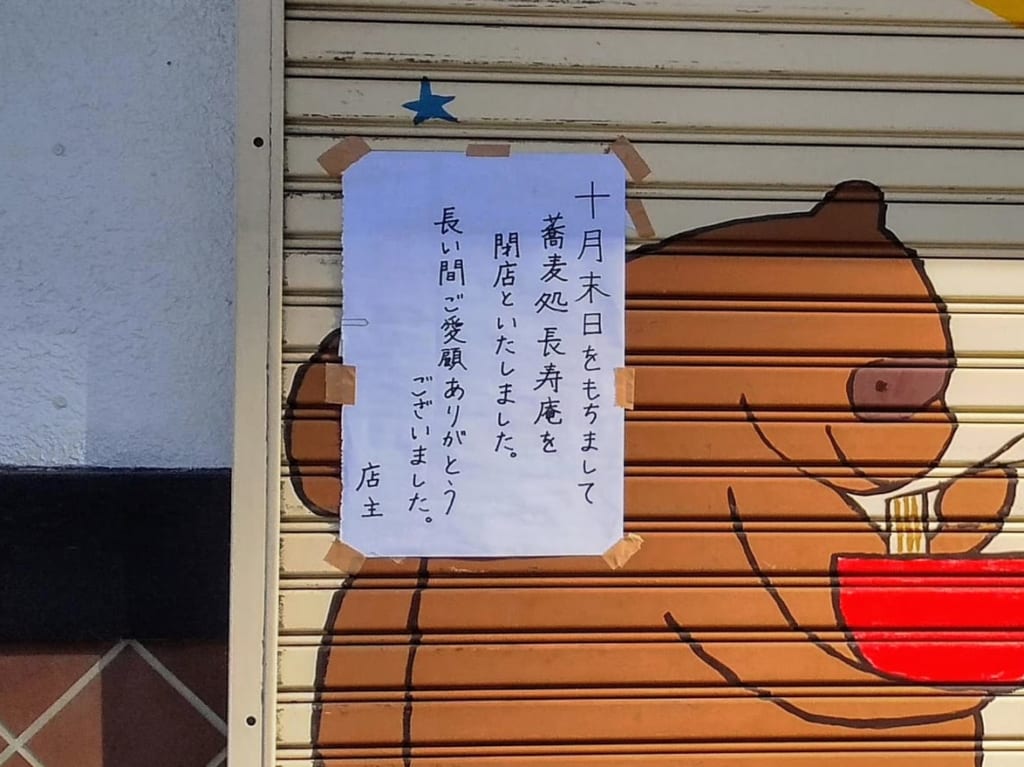 十月末日をもちまして
蕎麦処 長寿庵を
閉店といたしました。
長い間ご愛顧ありがとう
ございました。
店主